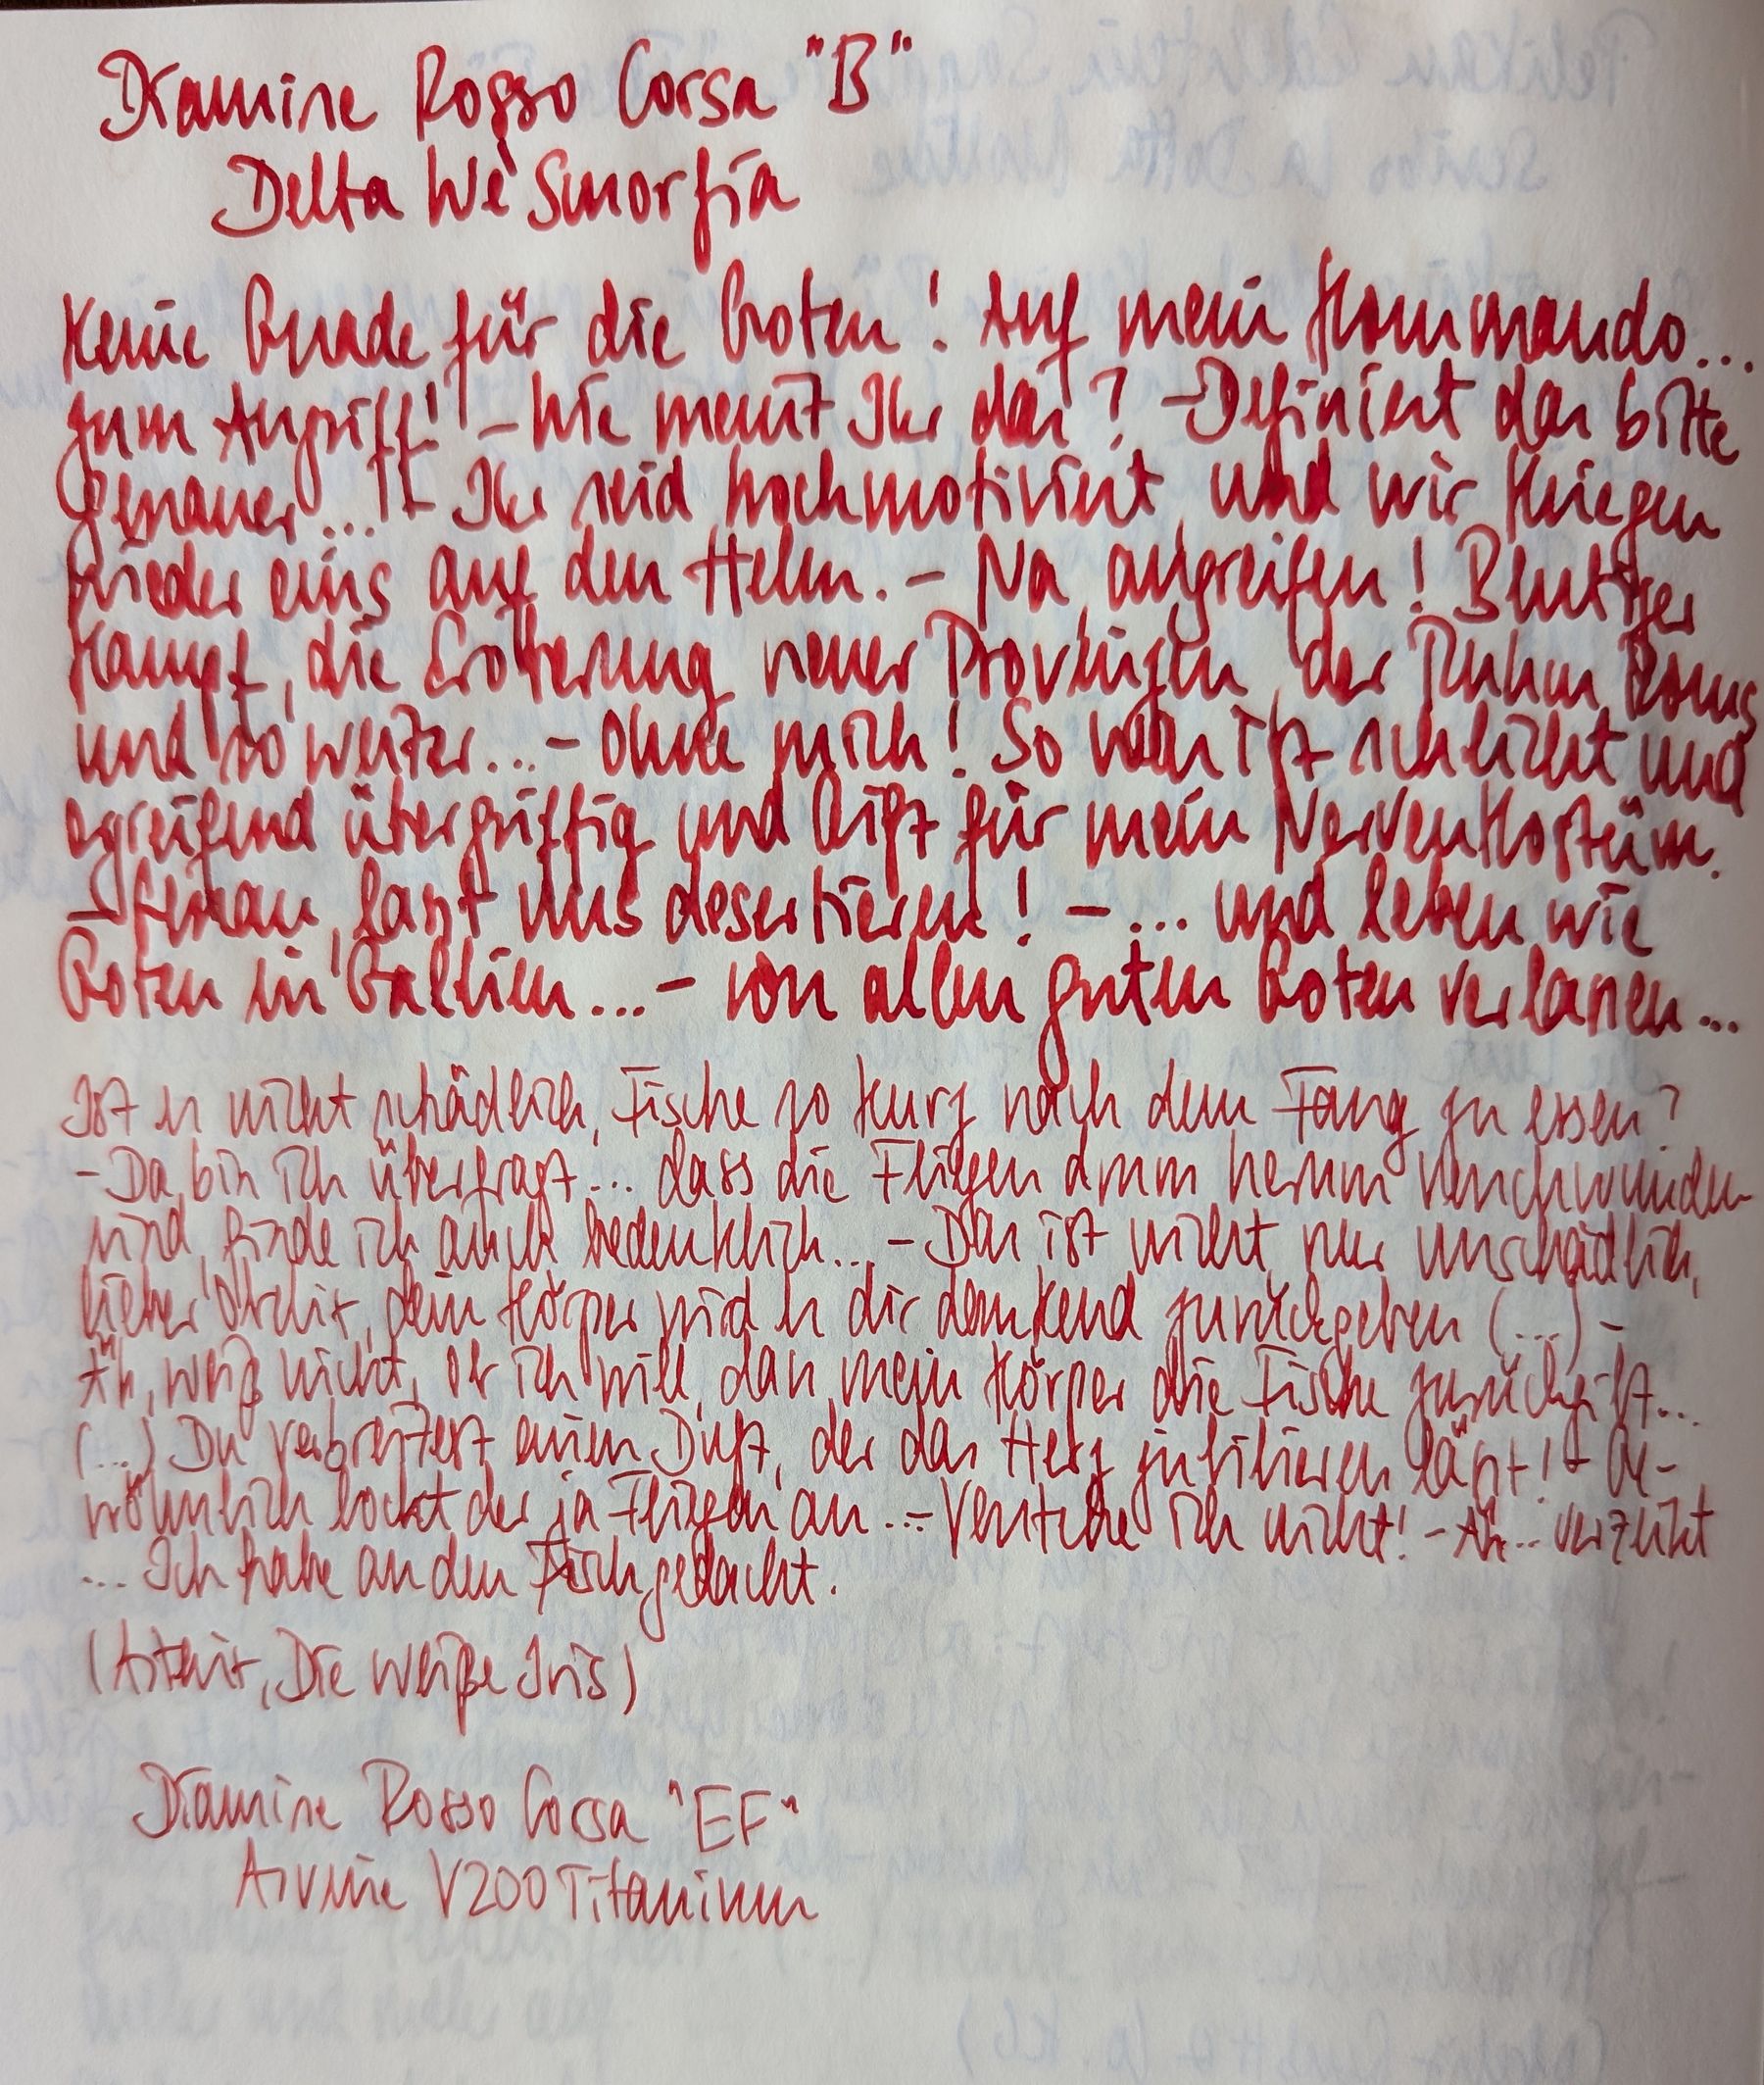 Diamine Rosso Corsa "B"
Delta We Smorfia
Keine Gnade für die Goten! Auf mein Kommando...
zum Angriff! – Wie meint Ihr das? – Definiert das bitte
genauer... – Ihr seid hochmotiviert und wir kriegen
wieder eins auf den Helm. – Na, angreifen! Blutiger
Kampf, die Eroberung neuer Provinzen, der Ruhm Roms
und so weiter... – Ohne mich! So was ist schlicht und
ergreifend übergriffig und Gift für mein Nervenkostüm.
– Genau, laßt uns desertieren! – ... und leben wie
Goten in Gallien... – von allen guten Goten verlassen...
Ist es nicht schädlich, Fische so kurz nach dem Fang zu essen?
– Da bin ich überfragt... dass die Fliegen drum herum verschwunden
sind, finde ich auch bedenklich... – Das ist nicht nur unschädlich,
lieber Obelix, dein Körper wird es dir dankend zurückgeben (...) –
Äh, weiß nicht, ob ich will, dass mein Körper die Fische zurückgibt...
(...) Du verbreitest einen Duft, der das Herz jubilieren läßt! – Ge-
wöhnlich lockt der ja Fliegen an... – Verstehe ich nicht! – Äh... verzeiht
... Ich habe an den Fisch gedacht.
(Asterix, Die Weiße Iris)
Diamine Rosso Corsa "EF"
Arvine V200 Titanium